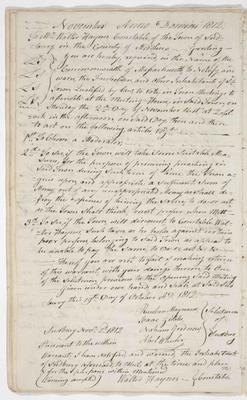 November Anno Domini 1812.
To Mr. Walter Haynes Constable of the Town of Sud-
bury in the County of Middlesex Greeting
You are hereby required in the Name of the
Commonwealth of Massachusetts to Notify and
warn the Freeholders and other Inhabitants of Sd
Town Qualified by law to vote in Town Meetings to
assemble at the Meeting House in Sudbury on
Monday the Day of November next at
Clock in the afternoon on Said Day then and there
to act on the following articles (viz)
1st To Choose a Moderator
2d To see if the Town will take Some Suitable Mea
sures, for the purpose of procuring preaching in
Said Town during Such term of time the Town a-
gree upon and appropriate a Sufficient Sum of
Money out of any unappropriated Money or to de-
fray the expense of hiring the Same, to do or act
as the Town Shall think most proper when Met
3d To see if the Town will Constable Wal-
ter Haynes Such taxes as he holds against certain
poor persons belonging to Said Town as appear to
be unable to pay the Same, to do or act &c
Hereof you are not to fail of making return
of this warrant with your doings therein to One
of the Selectmen previous to the opening Said Meeting
Given under our hands and Seals at Sudbury
this 19th Day of October AD. 1812
Reuben Maynard
Isaac
Nahum
Abel Wheeler
Selectmen
of
Sudbury
Sudbury Nov. 2d 1812
Pursuant to the within
Warrant I have notified and warned, the Inhabitants
of Sudbury to meet at the time and place
for the purposes within Mentioned
Walter Haynes Constable